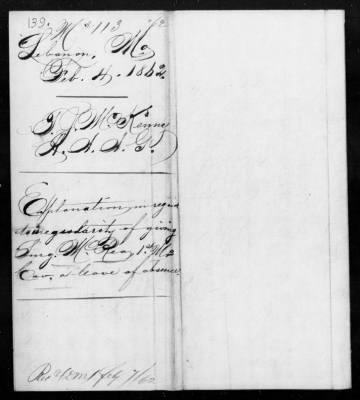 139. M 113 /62
Lebanon, Mo
Feb. 4. 1862.
T. J. McKenny
A. A. A. G.
Explanation in regard
to irregularity of giving
Surg. M. Rea, 1st Mo
Cav. a leave of absence.
Feby 7/62